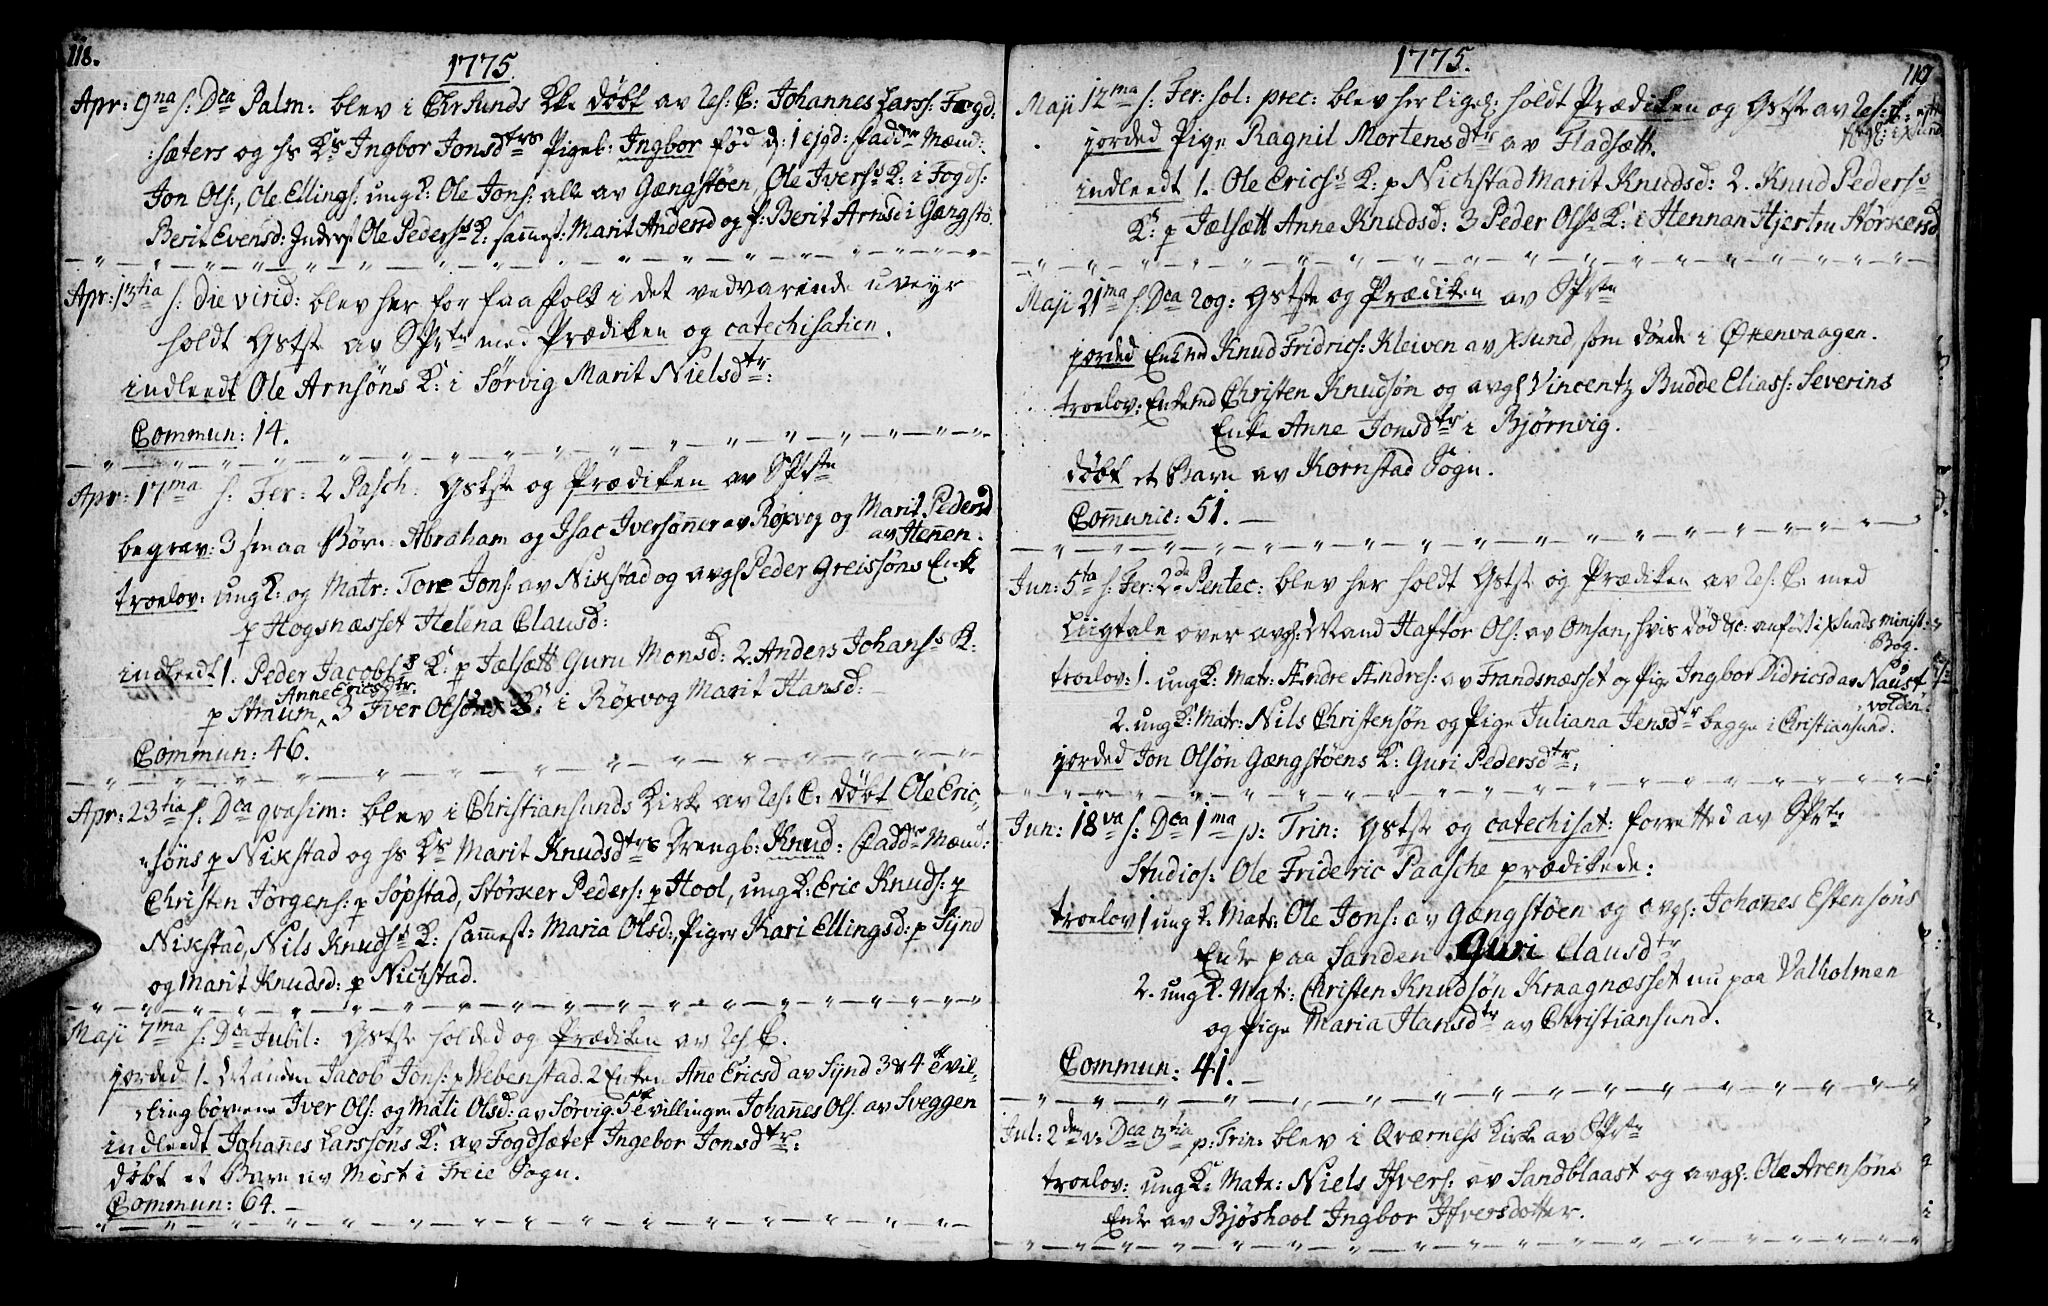 118.
1775.
Apr: 9na s: Dca Palm: blev i Chrsunds Kke døbt av res: C: Johannes Larss: Fogd:
:sæters og hs Ks Ingbor Jonsdtrs Pigeb: Ingbor fød d: 1 ejgd: fadd Mænd:
Jon Ols:, Ole Ellings: ungK: Ole Jons: alle av Gængstøen, Ole Iverss K: i Fogds:
Berit Evensd: Inders: Ole Pederss K: sammest: Marit Andersd og p: Berit Arnsd i Gængstö.
Apr: 13tia s: Die virid: blev her for faa folk i det vedvarende uveyr
holdt Gstste av SPrtn med Prædiken og catechisation.
indleedt Ole Arnsöns K: i Sørvig Marit Nielsdtr:
Commun: 14.
Apr: 17ma s: Fer: 2 Pasch: Gstste og Prædiken av SPrtn
begrav: 3 smaa Børn: Abraham og Isac Iversönner av Røxvog og Marit Pedersd
av Hennen.
troelov: ungK: og Matr: Tore Jons: av Nikstad og avgs Peder Greissöns Enke
p Hogsnæsset Helena Clausd:
indleedt 1. Peder Jacobss K: p Jælsætt Guru Monsd: 2. Anders Johanss K:
p Straum Anne Ericsdtr. 3 Iver Olsöns K: i Røxvog Marit Hansd:
Commun: 46.
Apr: 23tia s: Dca qvasim: blev i Christiansunds Kirke av res: C. døbt Ole Eric,
söns p Nikstad og hs Ks Marit Knudsdtrs Drengb: Knud: Fadd: Mænd:
Christen Jörgens: p Söpstad, Störker Peders: p Hool, ungK: Eric Knuds: p
Nikstad, Nils Knudss K: sammest: Maria Olsd:, Piger Kari Ellingsd: p Synd
og Marit Knudsd: p Nichstad.
Maji 7ma s: Dca Jubil: Gstste holded og Prædiken av res C.
jorded 1. Manden Jacob Jons: p Webenstad. 2 Enken Ane Ericsd av Synd 3 & 4 tvil-
lingbörnene Iver Ols: og Mali Olsd: av Sørvig. 5 tvillingen Johannes Ols: av Sveggen
indleedt Johannes Larssöns K: av Fogdsæter Ingebor Jonsdtr:
døbt et Barn av Möst i Freie Sogn.
Commun: 64.
1775.
119
Maji 12ma s: Fer: sol: prec: blev her liges: holdt Prædiken og Gstste av res: C:
jorded Pige Ragnil Mortensdtr av Fladsætt.
indleedt 1. Ole Ericss K: p Nichstad Marit Knudsd: 2. Knud Pederss
K: p Jælsætt Anne Knudsd: 3 Peder Olss K: i Hennan Hjestru Störkersd
Maji 21ma s: Dca rog: Gstste og Prædiken av SPrtn
jorded Enkmd Knud Fridrics: Kleiven av Xsund som døde i Örkenvaagen.
troelov: Enkemd Christen Knudsön og avgs Vincentz Budde Eliass: Severins
Enke Anne Jonsdtr i Bjørnvig.
døbt et Barn av Kornstad Sogn.
Communic: 51.
Jun: 5ta s: Fer: 2da Pentec: blev her holdt Gstste og Prædiken av res: C. med
Liigtale over avgs: Mand Haftor Ols: av Omsan, hvis død &c: anført i Xsunds minist:
Bog.
troelov: 1. ungK: Matr: Ændre Ændres: av Frandsnæsset og Pige Ingbor Didricsd av Naust
volden.
2. ungK: Matr: Nils Christensön og Pige Juliana Jensdtr begge i Christiansund.
jorded Jon Olsön Gængstøens K: Guri Pedersdtr:
Jun: 18va s: Dca 1ma p: Trin: Gstste og catechisat: forretted av SPrtn
Studios: Ole Frideric Paasche prædikede:
troelov 1 ungK. Matr: Ole Jons: av Gængstøen og avgs: Johannes Estensöns
Enke paa Sanden Guri Clausdtr
2. ungK. Mgtr: Christen Knudsön Kraagnæsset nu paa Valholmen
og pige Maria Hansdtr av Christiansund.
Commun: 41.
Jul: 2den v: Dca 3tia p: Trin: blev i Qværness Kirke av SPrtn
troelov: ungK: Matr: Niels Ifvers: av Sandblaast og avgs: Ole Arensöns
Enke av Bjöshool Ingbor Ifversdotter.